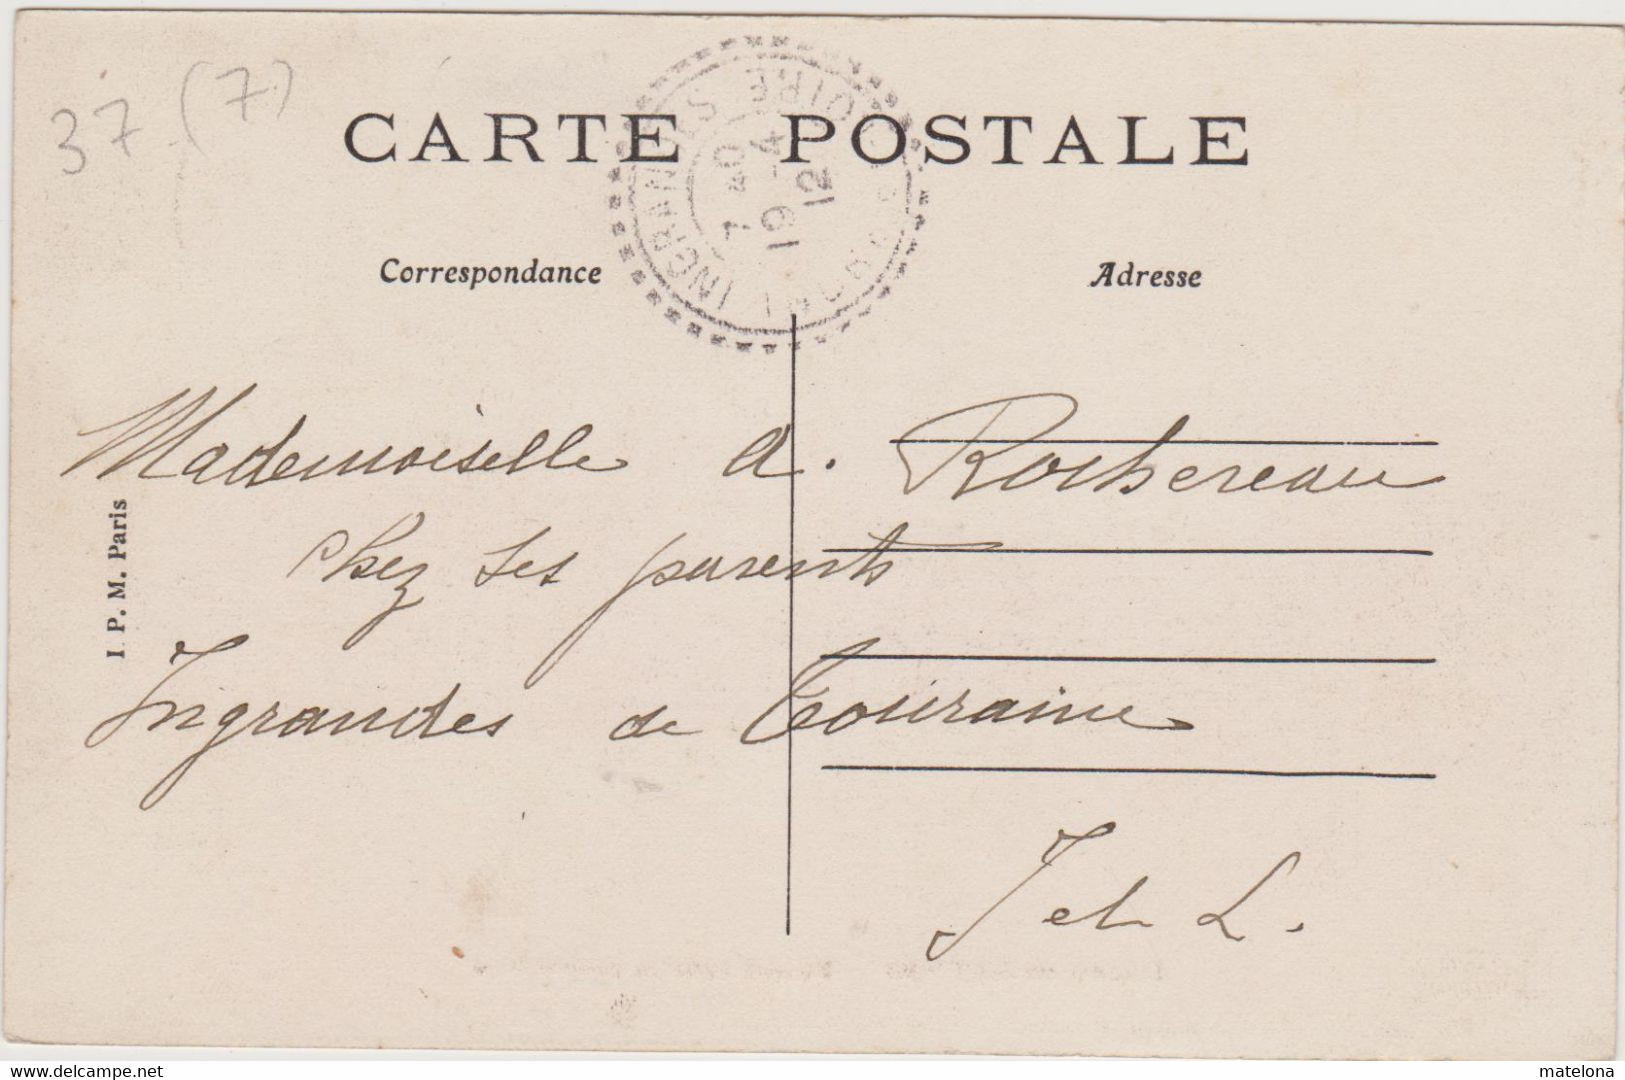 37 (7)
CARTE POSTALE
INGRANDES
LOIRE
7 40
19 - 4
12
Correspondance
Adresse
Mademoiselle A. Rochereau
chez ses parents
Ingrandes de Touraine
J et L.
I. P. M. Paris
www.delcampe.net
matelona